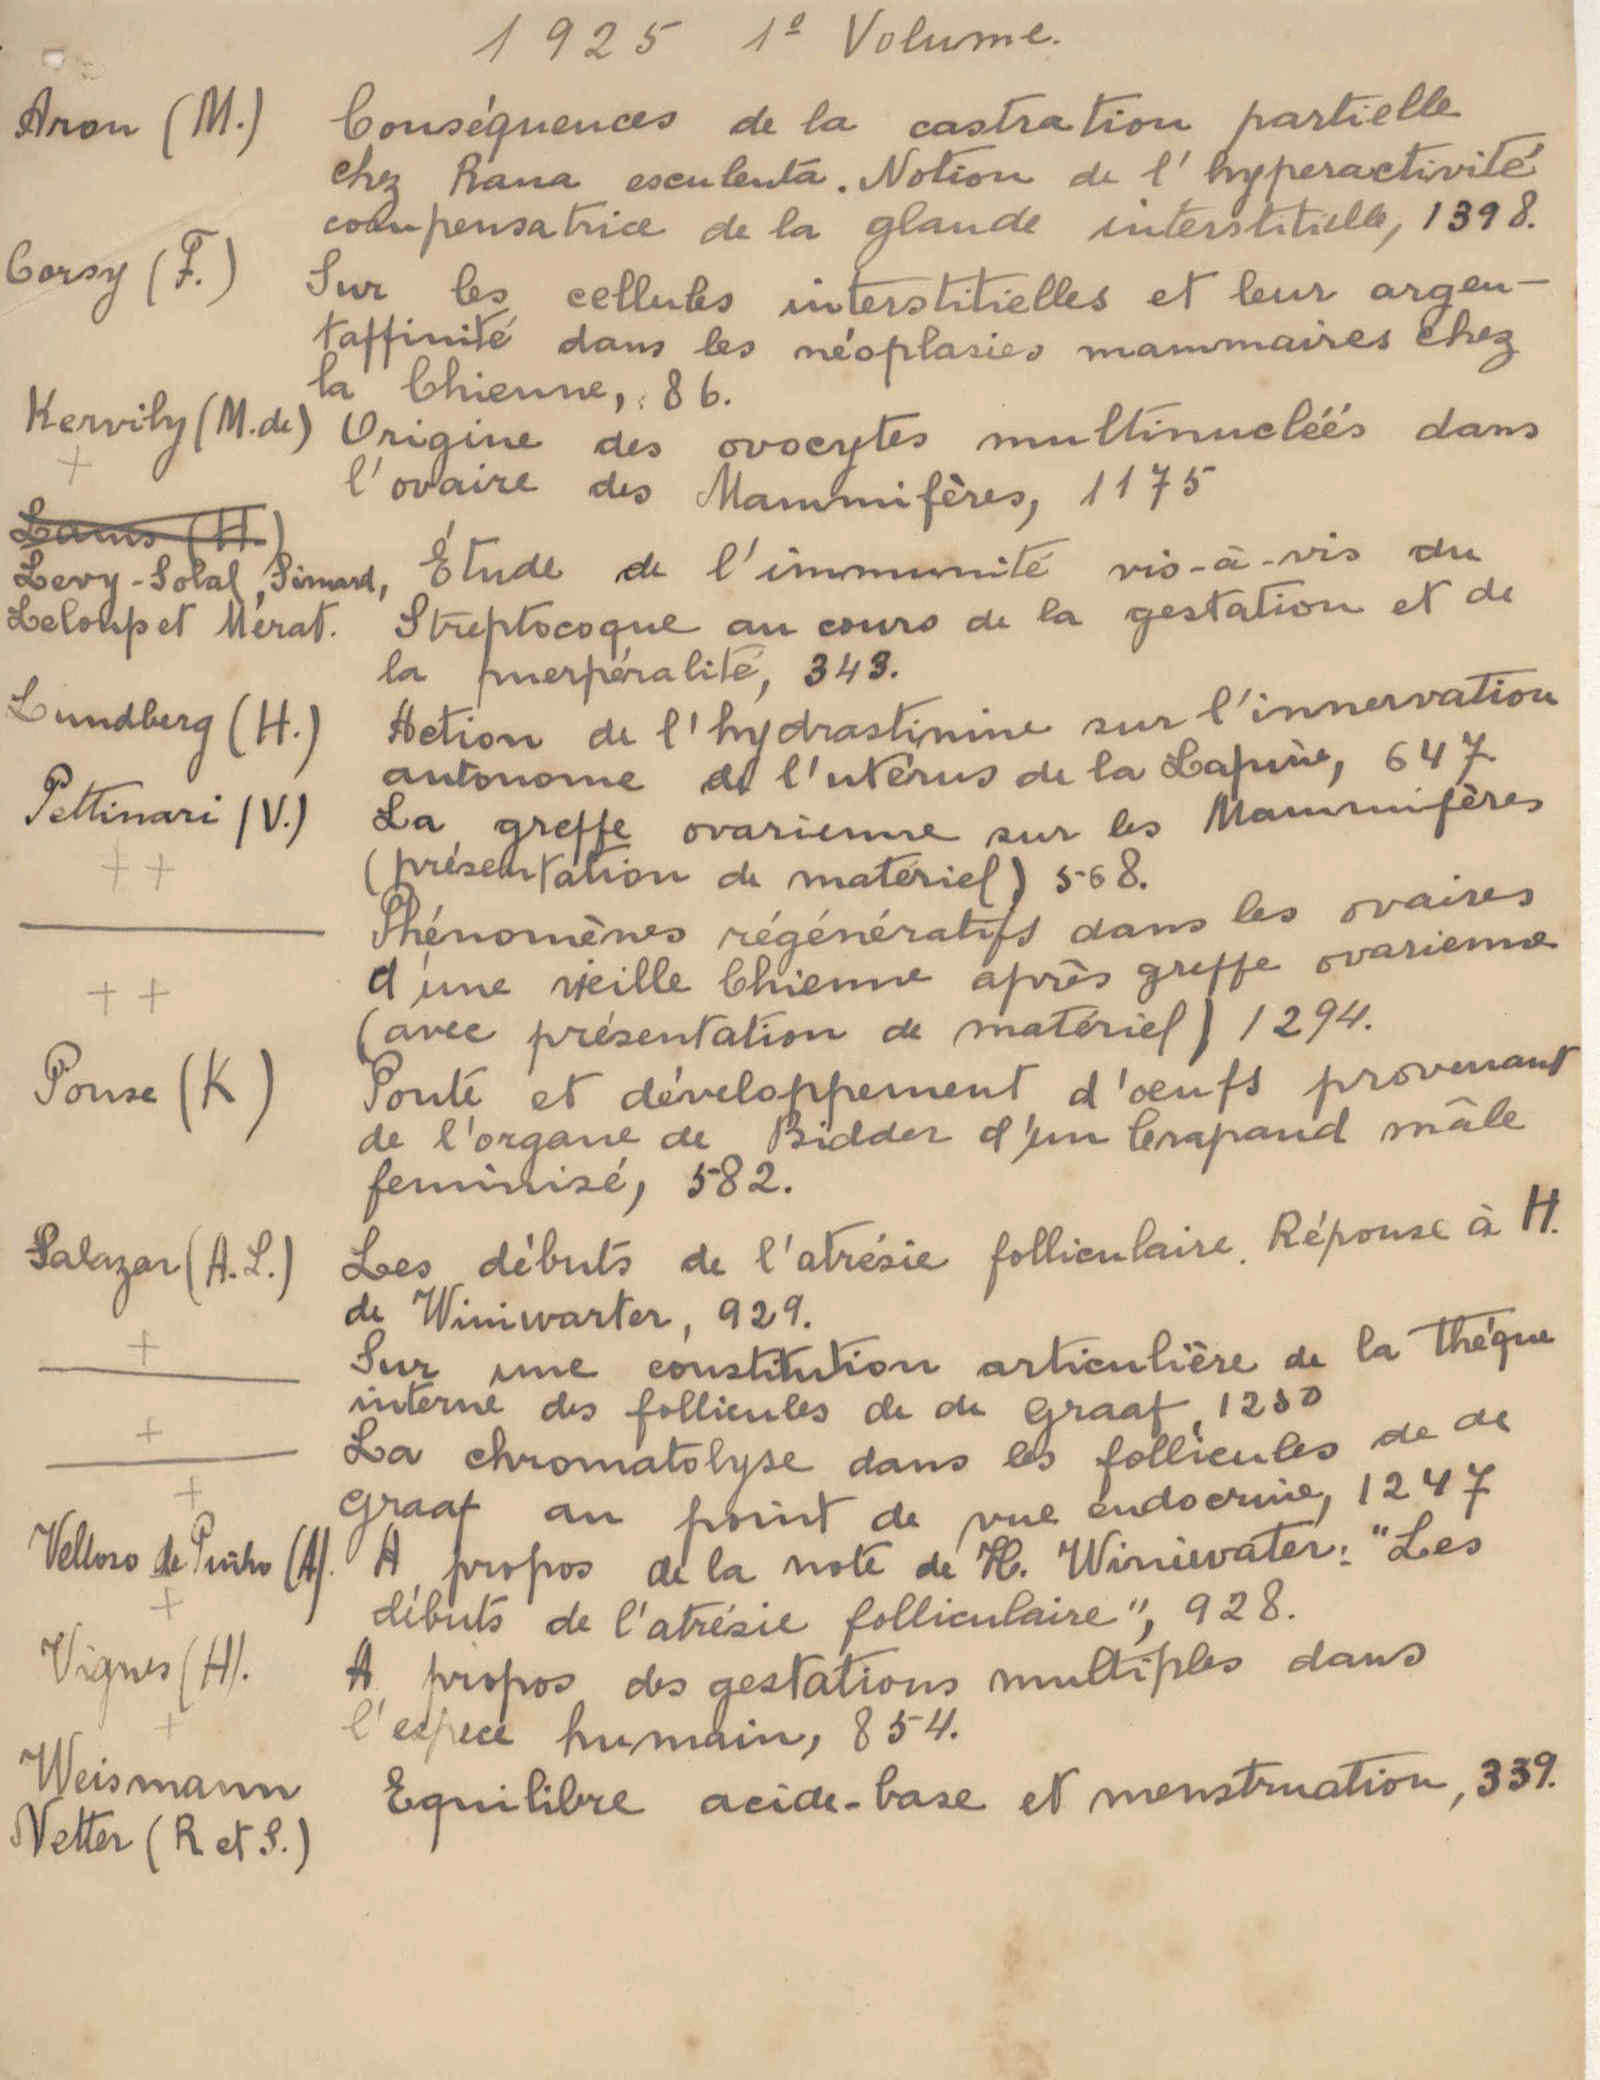 1925 1º Volume.
Aron (M.) Conséquences de la castration partielle
chez Rana esculenta. Notion de l'hyperactivité
compensatrice de la glande interstitielle, 1398.
Corsy (F.) Sur les cellules interstitielles et leur argen-
taffinité dans les néoplasies mammaires chez
la Chienne, 86.
Kervily (M. de) Origine des ovocytes multinucléés dans
+ l'ovaire des Mammifères, 1175
Lams (H.)
Levy-Solal, Simard, Étude de l'immunité vis-à-vis du
Leloup et Mérat. Streptocoque au cours de la gestation et de
la puerpéralité, 343.
Lundberg (H.) Action de l'hydrastinine sur l'innervation
autonome de l'utérus de la Lapine, 647
Pettinari (V.) La greffe ovarienne sur les Mammifères
++ (présentation de matériel) 568.
Phénomènes régénératifs dans les ovaires
++ d'une vieille Chienne après greffe ovarienne
(avec présentation de matériel) 1294.
Ponse (K) Ponte et développement d'œufs provenant
de l'organe de Bidder d'un Crapaud mâle
feminisé, 582.
Salazar (A. L.) Les débuts de l'atrésie folliculaire. Réponse à H.
de Winiwarter, 929.
+ Sur une constitution articulière de la théque
interne des follicules de de Graaf, 1250
+ La chromatolyse dans les follicules de de
+ Graaf au point de vue endocrine, 1247
Velloso de Pinho (A). A propos de la note de H. Winiewater: "Les
+ débuts de l'atrésie folliculaire", 928.
Vignes (H). A propos des gestations multiples dans
+ l'espece humain, 854.
Weismann Equilibre acide-base et menstruation, 339.
Netter (R et S.)